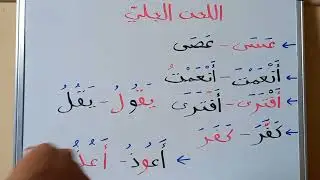 اللحن الجليّ
← عَسَى - عَصَى
← أَنْعَمْتَ - أَنْعَمْتُ
أَفْتَرَى - أَفَتَرَى يَقُولُ - يَقُلُ
← كَفَّرَ - كَفَرَ
← أَعُوذُ -